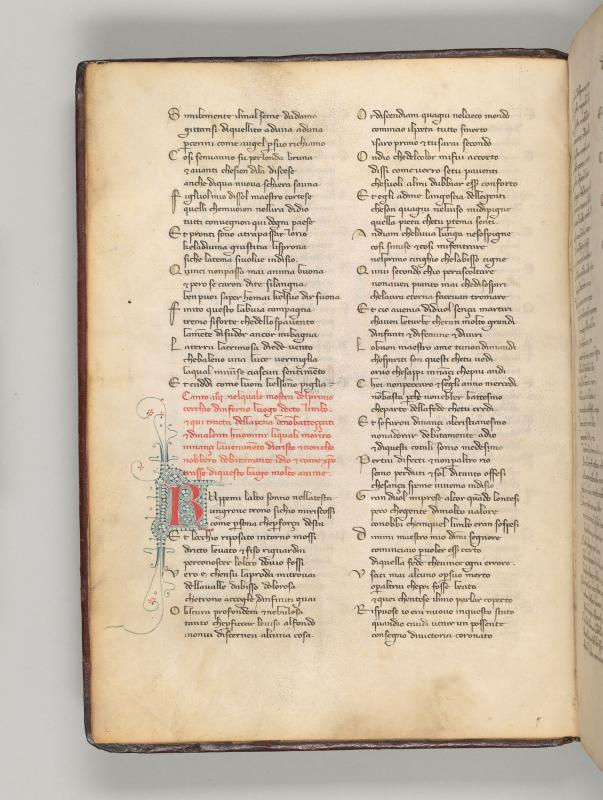 S imilemente ilmal seme dadamo
gittansi diquellito aduna aduna
percenni come augel per suo richiamo
C osi senuanno su perlonda bruna
et auanti chesien dila discese
anche diqua nuoua schiera sauna
F igliuol mio dissel maestro cortese
quelli chemuoion nellira didio
tutti conuegnon qui dogni paese
E t pronti sono atrapassar lorio
cheladiuina giustitia lisprona
siche latema siuolue indisio
Q uinci nonpassa mai anima buona
et pero se caron dite silagna
ben puoi saper homai chelsuo dir suona
F inito questo labuia campagna
tremo siforte chedello spauento
lamete disudor ancor mibagna
L aterra lacrimosa diede uento
chebaleno una luce uermiglia
laqual miuinse ciascun sentimeto
E t caddi come luom chelsono piglia
Canto iiij nelquale mostra delprimo
cerchio dinferno luogo decto limbo
et qui tracta dellapena deno battezzati
et deualenti huomini liquali moriro
innanzi lauenimeto dicristo et non cho
nobbero debitamente idio et come xpo
trasse diquesto luogo molte anime
R Vppemi lalto sonno nellatesta
ungreue trono sicho miriscossi
come psona chepforza desta
E t locchio riposato intorno mossi
dritto leuato et fiso riguardai
perconoscer loloco douio fossi
V ero e chensu laproda mitrouai
dellaualle dabisso dolorosa
chetrono accoglie dinfiniti guai
O bscura profonda era et nebulosa
tanto cheperficcar louiso alfondo
io non ui discernea alcuna cosa
O r discendiam quagiu nelcieco mondo
comincio ilpoeta tutto smorto
isaro primo et tu sarai secondo
O ndio chedelcolor mifui accorto
dissi come uerro setu pauenti
chesuoli almi dubbiar esser conforto
E t egli ame langoscia dellegenti
cheson quagiu neluiso midipigne
quella pieta chetu ptema senti
A ndiam chelauia lunga nesospigne
cosi simise et cosi mifentrare
nelprimo cinghio chelabisso cigne
Q uiui secondo chio perascoltare
nonauea pianto mai chedisospiri
chelaura eterna faceuan tremare
E t cio auenia diduol senza martiri
chauen leturbe cheran molto grandi
dinfanti et di femine et diuiri
L obuon maestro ame tunondimandi
chespiriti son questi chetu uedi
oruo chesappi innanzi chepiu andi
C hei nonpeccaro et segli anno mercedi
nobasta perche nonebber battesmo
cheparte dellafede chetu credi
E t sefuron dinanzi alcristianesmo
nonadorar debitamente adio
et diquesti cotali sonio medesimo
P ertai difetti et nonpaltro rio
semo perduti et sol ditanto offesi
chesanza speme uiuemo indisio
G ran duol mi prese alcor quado lontesi
pero chegente dimolto ualore
conobbi chenquel limbo eran sospesi
D immi maestro mio dimi segniore
cominciaio puoler esser certo
diquella fede cheuince ogni errore
V sscici mai alcuno opsuo merto
opaltrui chepoi fosse beato
et quei chentese ilmio parlar coperto
R ispuose io era nuouo inquesto stato
quandio ci uidi uenir un possente
consegno diuictoria coronato